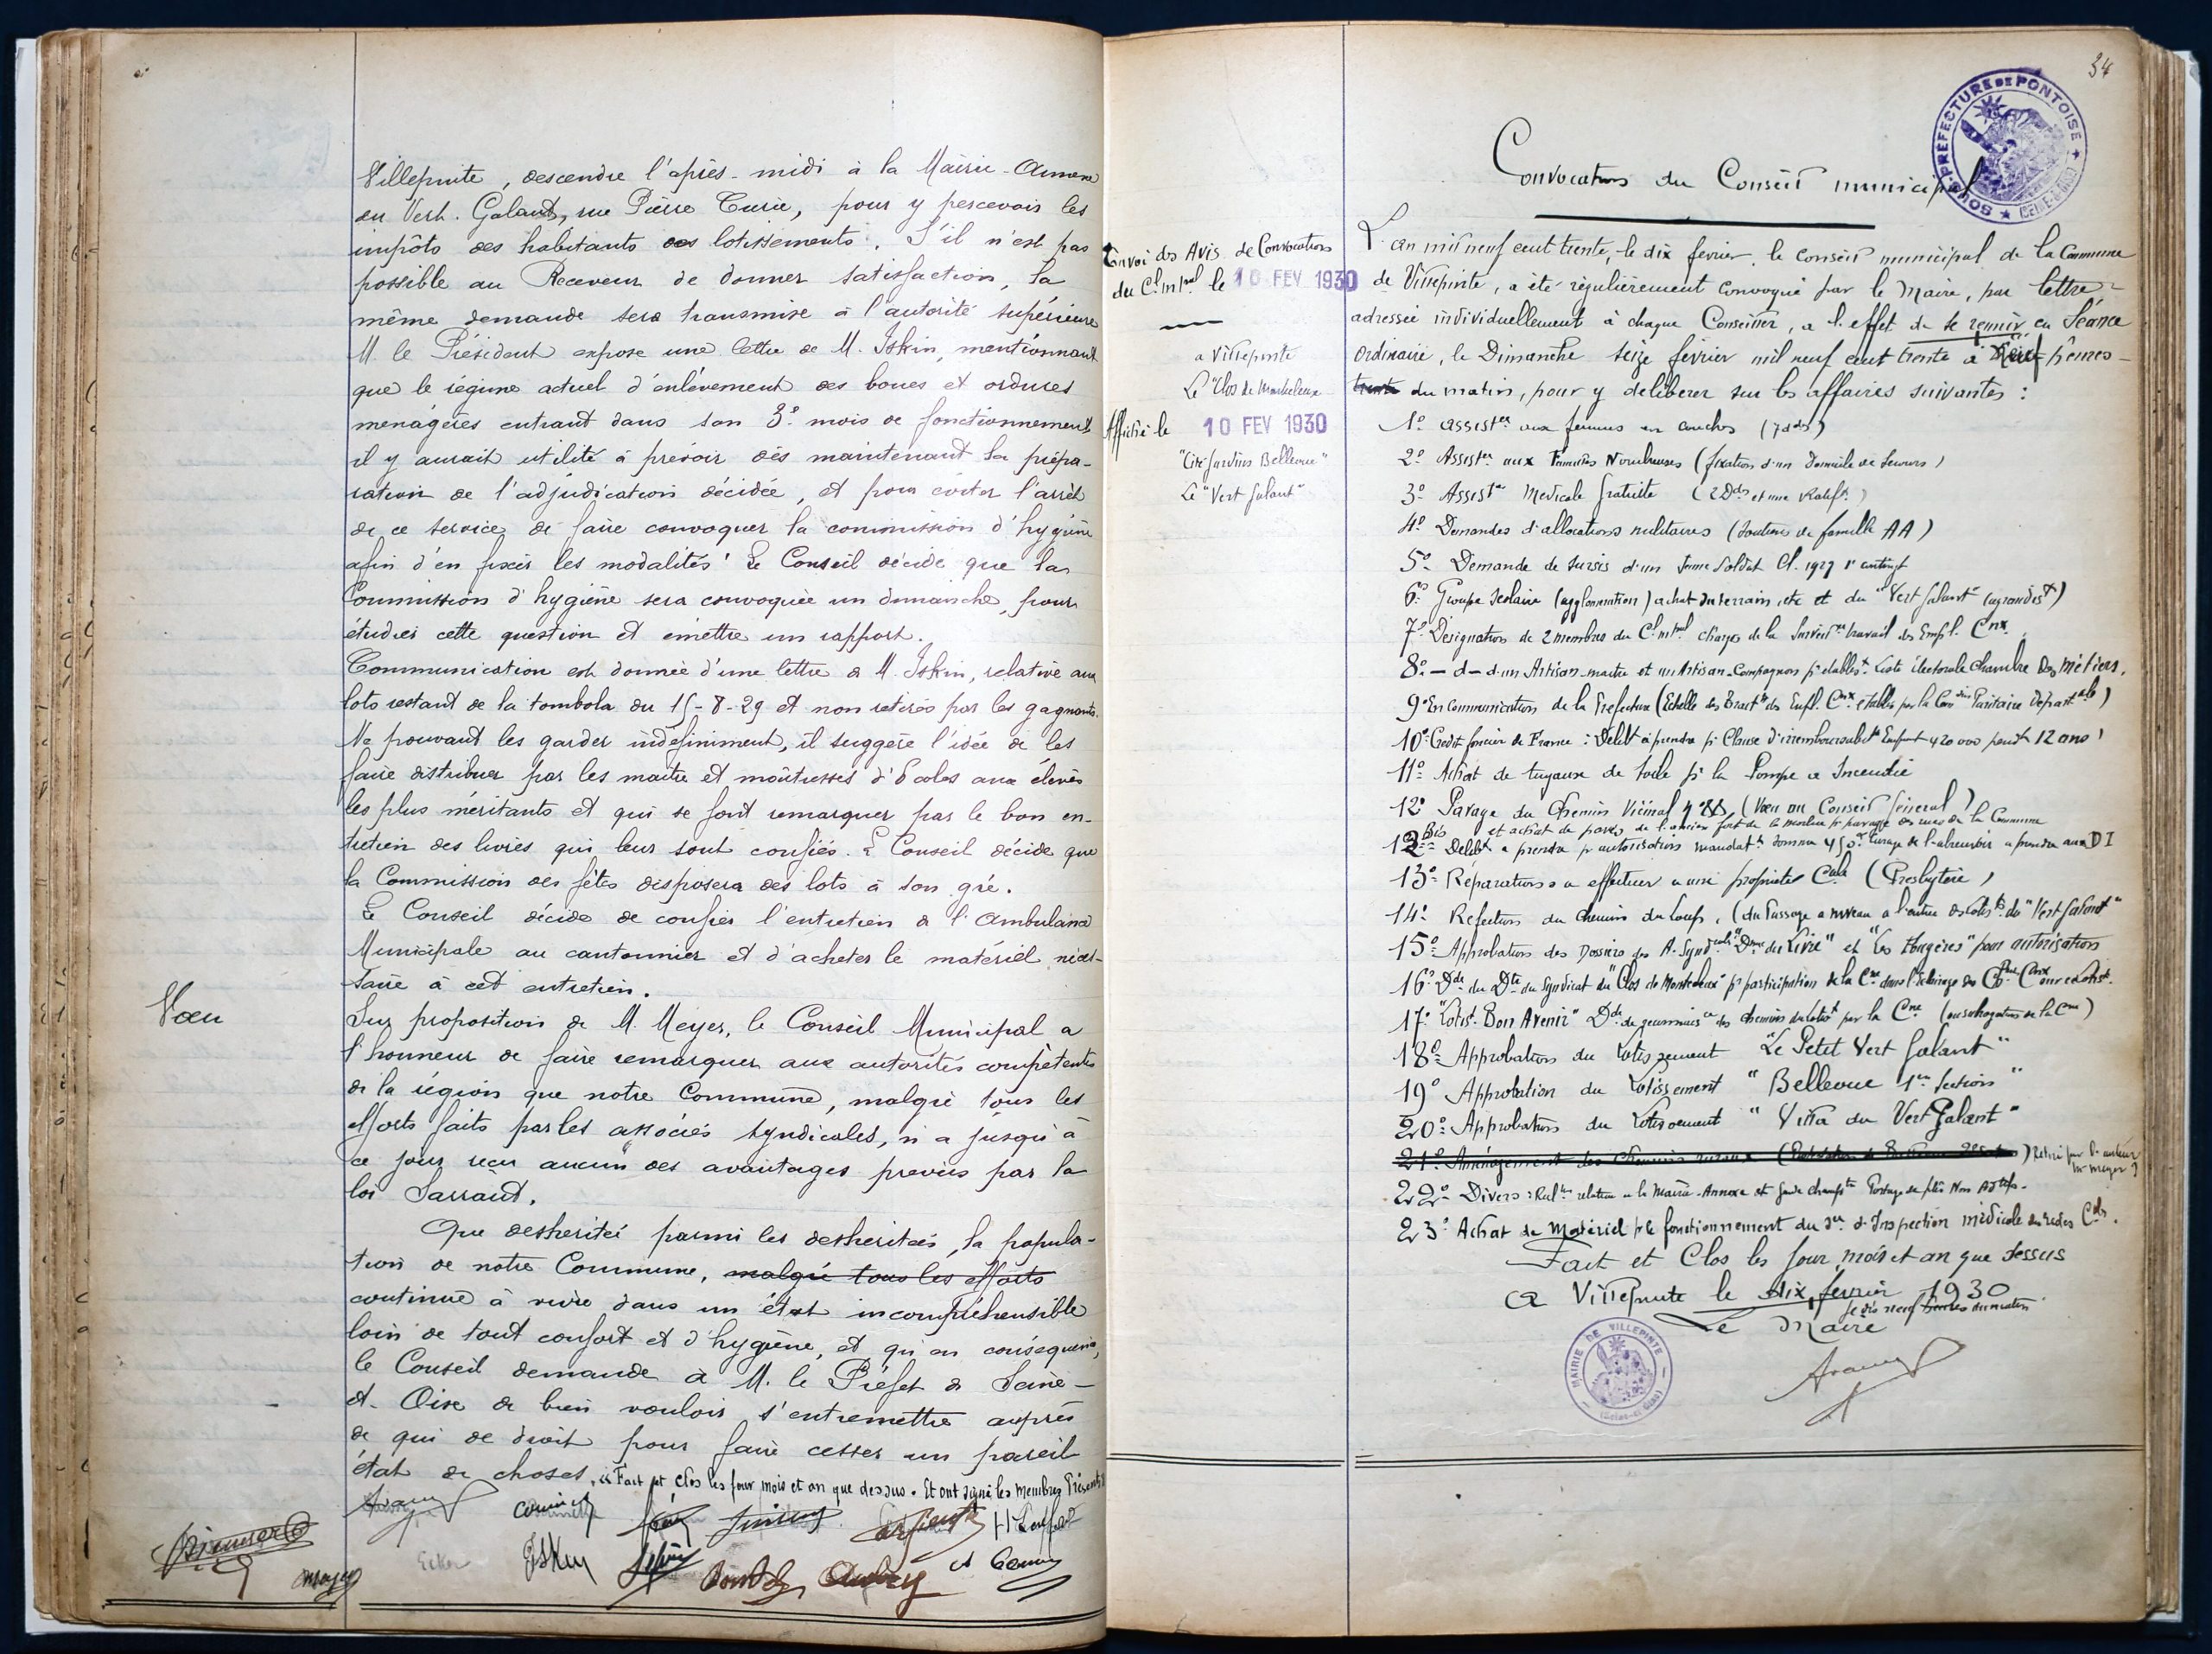 Villepinte, descendre l'après-midi à la Mairie-Annexe
du Vert-Galant, rue Pierre Curie, pour y percevoir les
impôts des habitants des lotissements. S'il n'est pas
possible au Receveur de donner satisfaction, la
même demande sera transmise à l'autorité supérieure
M. le Président expose une lettre de M. Iskin, mentionnant
que le régime actuel d'enlèvement des boues et ordures
ménagères entrant dans son 3e mois de fonctionnement
il y aurait utilité à prévoir dès maintenant la prépa-
ration de l'adjudication décidée, et pour éviter l'arrêt
de ce service de faire convoquer la commission d'hygiène
afin d'en fixer les modalités. Le Conseil décide que la
Commission d'hygiène sera convoquée un dimanche, pour
étudier cette question et émettre un rapport.
Communication est donnée d'une lettre de M. Iskin, relative aux
lots restant de la tombola du 15-8-29 et non retirés par les gagnants.
Ne pouvant les garder indéfiniment, il suggère l'idée de les
faire distribuer par les maitre et maîtresses d'Ecoles aux élèves
les plus méritants et qui se font remarquer par le bon en-
tretien des livres qui leur sont confiés. Le Conseil décide que
la Commission des fêtes disposera des lots à son gré.
Le Conseil décide de confier l'entretien de l'Ambulance
Municipale au cantonnier et d'acheter le matériel néces-
saire à cet entretien.
Voeu
Sur proposition de M. Meyer, le Conseil Municipal a
l'honneur de faire remarquer aux autorités compétentes
de la région que notre Commune, malgré tous les
efforts faits par les associés syndicales, n'a jusqu'à
ce jour reçu aucun des avantages prévus par la
loi Sarraut.
Que deshéritée parmi les deshéritées, la popula-
tion de notre Commune, malgré tous les efforts
continue à vivre dans un état incompréhensible
loin de tout confort et d'hygiène, et qu'en conséquence,
le Conseil demande à M. le Préfet de Seine-
et-Oise de bien vouloir s'entremettre auprès
de qui de droit pour faire cesser un pareil
état de choses. "Fait et clos les jour mois et an que dessus. Et ont signé les membres Présents
Iskin
Meyer
Ecker
34
SOUS-PREFECTURE DE PONTOISE
Convocation du Conseil municipal
Envoi des Avis de Convocation
du Cl mpal le 10 FEV 1930
a Villepinte
Le "Clos de Montceleux"
Affiché le 10 FEV 1930
"Cité Jardins Bellevue"
Le "Vert Galant"
L'an mil neuf cent trente, le dix fevrier, le conseil municipal de la Commune
de Villepinte, a été régulièrement convoqué par le Maire, par lettre
adressée individuellement à chaque Conseiller, a l'effet de se réunir en Séance
ordinaire, le Dimanche seize février mil neuf cent trente à neuf heures
trente du matin, pour y deliberer sur les affaires suivantes :
1° assistce aux femmes en couches (7 ddes)
2° Assistce aux Familles Nombreuses (fixation d'un domicile de Secours)
3° Assistce Medicale Gratuite (2 Ddes et une Ratift.)
4° Demandes d'allocations militaires (soutiens de famille AA)
5° Demande de sursis d'un Jeune Soldat Cl. 1929 1er contingt
6° Groupe Scolaire (agglomération) achat du terrain, etc et du "Vert Galant" (agrandist)
7° Désignation de 2 membres du Cl mpal chargés de la Surveilce travail des Empl. Cnx.
8° - d - d'un Artisan-maitre et un Artisan-Compagnon pr établist Liste électorale Chambre Des Métiers.
9° En Communication de la Prefecture (Echelle des Traitts des Empl. Cnx établie par la Comion Paritaire Départale)
10° Credit foncier de France : Delibt à prendre pr Clause d'irremboursabté Emprunt 420 000 pendt 12 ans
11° Achat de tuyaux de toile pr la Pompe a Incendie
12° Pavage du Chemin Vicinal (Voeu au Conseil Général)
et achat de pavés de l'ancien fort de pr pavage des rues de la Commune
12 Bis Delibt a prendre pr autorisation mandatt somme Curage de l'abreuvoir a prendre aux DI
13° Réparations a effectuer a une propriété Cale (Presbytère)
14° Refection du Chemin du Loup, (du Passage a niveau a l'entrée des Lotts du "Vert Galant"
15° Approbation des Dossiers des A. Syndcales "Dne du Livre" et "Les Fougères" pour autorisation
16° Dde du Dte du Syndicat du "Clos de Montceleux" pr participation de la Cne dans l'Eclairage
17° "Lotist. Bon Avenir" Dde de des Chemins du Lotist par la Cne (ou subrogation de la Cne)
18° Approbation du Lotissement "Le Petit Vert Galant"
19° Approbation du Lotissement "Bellevue 1re Section"
20° Approbation du Lotissement "Villa du Vert Galant"
21° Aménagement des Chemins ruraux Retiré par l'auteur
Mr Meyer
22° Divers : relative a la Mairie-Annexe et Garde champte
23° Achat de Matériel pr le fonctionnement du Sce d'Inspection médicale des Ecoles Cales.
Fait et Clos les Jour, mois et an que dessus
A Villepinte le dix février 1930
Je dis neuf heures du matin
Le Maire
MAIRIE DE VILLEPINTE
(Seine-et-Oise)